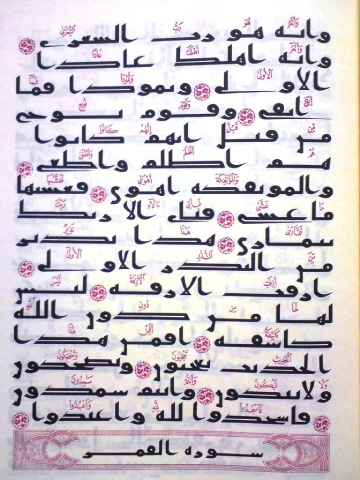 وانه هو رب الشعرى
وانه اهلك عادا
الاولى وثمودا فما
ابقى وقوم نوح
من قبل انهم كانوا
هم اظلم واطغى
والموتفكه اهوى فغشيها
ما غشى فباى الا ربك
تتمارى هذا نذير
من النذر الاولى
ازفت الازفه ليس
لها من دون الله
كاشفه افمن هذا
الحديث تعجبون وتضحكون
ولا تبكون وانتم سمدون
فاسجدوا لله واعبدوا
سوره القمر